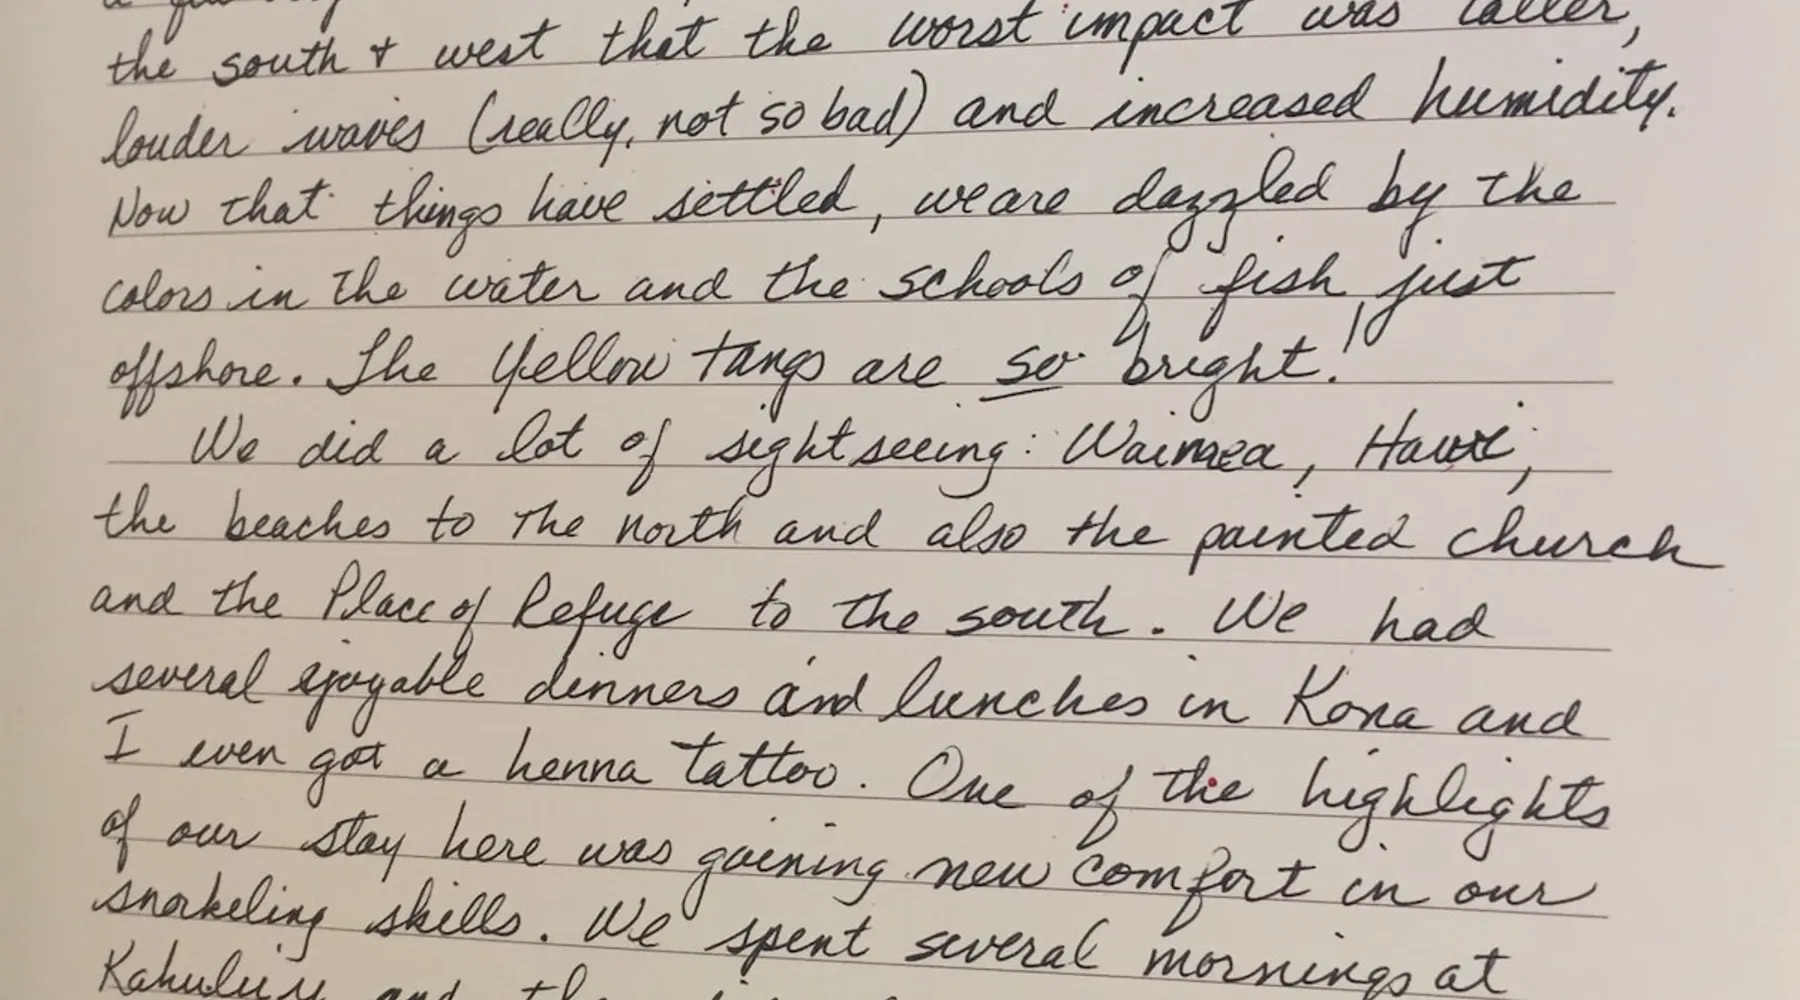 the south + west that the worst impact was taller,
louder waves (really, not so bad) and increased humidity.
Now that things have settled, we are dazzled by the
colors in the water and the schools of fish just
offshore. The Yellow tangs are so bright!
We did a lot of sightseeing: Waimea, Hawi,
the beaches to the north and also the painted church
and the Place of Refuge to the south. We had
several ejoyable dinners and lunches in Kona and
I even got a henna tattoo. One of the highlights
of our stay here was gaining new comfort in our
snorkeling skills. We spent several mornings at
and